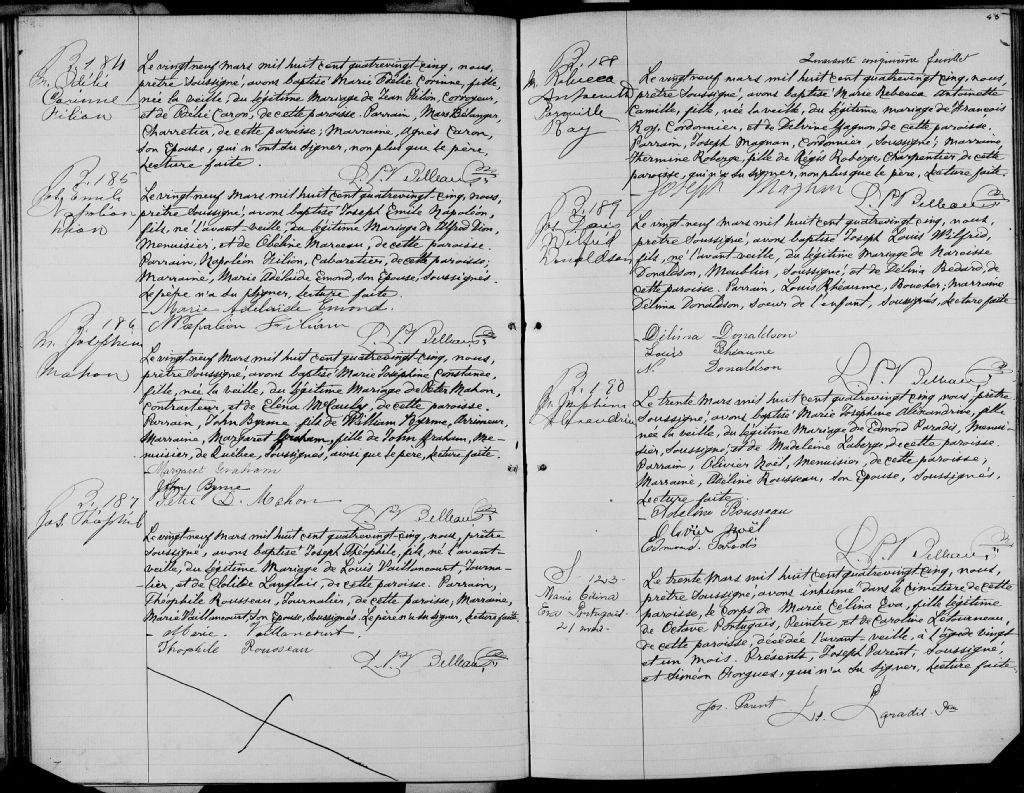 B. 184
M. Odélie
Corinne
Filion
Le vingt neuf Mars mil huit cent quatrevingt cinq, nous,
prêtre soussigné, avons baptisé Marie Odélie Corinne, fille,
née la veille, du légitime Mariage de Jean Filion, Corroyeur,
et de Odélie Caron, de cette paroisse. Parrain, Mars Bélanger,
Charretier, de cette paroisse; Marraine, Agnès Caron,
son Epouse, qui n'ont du signer, non plus que le père,
Lecture faite.
B. 185
Jos Emile
Napoléon
Le vingt neuf Mars mil huit cent quatrevingt cinq, nous,
prêtre soussigné, avons baptisé Joseph Emile Napoléon,
fils, né l'avant veille, du légitime Mariage de Alfred
Menuisier, et de Obéline Marceau, de cette paroisse.
Parrain, Napoléon Filion, Cabaretier, de cette paroisse;
Marraine, Marie Adelaide Emond, son Epouse, soussignés.
Le père n'a su signer, Lecture faite.
Marie Adelaide Emond.
Napoléon Filion
B. 186
M. Josephine
Mahon
Le vingt neuf Mars mil huit cent quatrevingt cinq, nous,
prêtre soussigné, avons baptisé Marie Josephine Constance,
fille, née la veille, du légitime Mariage de Peter Mahon,
Contracteur, et de Eléna McCauly, de cette paroisse.
Parrain, John Byrne fils de William Byrne, Arrimeur,
Marraine, Margaret Graham, fille de John Graham, Me-
nuisier, de Québec, soussignés, ainsi que le père, Lecture faite.
Margaret Graham
John Byrne
Peter D. Mahon
B. 187
Jos. Théophile
Le vingt neuf Mars mil huit cent quatrevingt cinq, nous, prêtre
soussigné, avons baptisé Joseph Théophile, fils, né l'avant-
veille, du légitime Mariage de Louis Vaillancourt, Journa-
lier, et de Clotilde Langlais, de cette paroisse. Parrain,
Théophile Rousseau, Journalier, de cette paroisse; Marraine,
Marie Vaillancourt, son Epouse, soussignés. Le père n'a su signer, Lecture faite.
Marie Vaillancourt
Théophile Rousseau
Quarante cinquième feuillet
B. 188
M. Rebecca
Antoinette
Camille
Roy
Le vingt neuf Mars mil huit cent quatrevingt cinq, nous,
prêtre soussigné, avons baptisé Marie Rebecca Antoinette
Camille, fille, née la veille, du légitime mariage de François
Roy, Cordonnier, et de Delvine Magnan, de cette paroisse.
Parrain, Joseph Magnan, Cordonnier, soussigné; marraine,
Hermine Roberge, fille de Régis Roberge, Charpentier, de cette
paroisse, qui n'a su signer, non plus que le père, Lecture faite.
Joseph Magnan
B. 189
Jos Louis
Wilfred
Donaldson
Le vingt neuf Mars mil huit cent quatrevingt cinq, nous,
prêtre soussigné, avons baptisé Joseph Louis Wilfred,
fils, né l'avant veille, du légitime mariage de Narcisse
Donaldson, Meublier, soussigné, et de Délina Bedard, de
cette paroisse. Parrain, Louis Rhéaume, Boucher; marraine
Délina Donaldson, soeur de l'enfant, soussignés, Lecture faite
Délina Donaldson
Louis Rhéaume
N. Donaldson
B. 190
M. Josephine
Alexandrine
Le trente Mars mil huit cent quatrevingt cinq nous prêtre
soussigné, avons baptisé Marie Josephine Alexandrine, fille
née la veille, du légitime Mariage de Edmond Paradis, Menui-
sier, soussigné, et de Madeleine Laberge, de cette paroisse.
Parrain, Olivier Noël, Menuisier, de cette paroisse;
Marraine, Adéline Rousseau, son Epouse, soussignés,
Lecture faite.
Adeline Rousseau
Olivier Noël
Edmond Paradis
S
Marie Celina
Eva Portugais
21 mois.
Le trente Mars mil huit cent quatrevingt cinq, nous,
prêtre soussigné, avons inhumé dans le cimetière de cette
paroisse, le corps de Marie Celina Eva, fille légitime
de Octave Portugais, Peintre, et de Caroline Letourneau,
de cette paroisse, décédée l'avant-veille, à l'âge de vingt
et un mois. Présents, Joseph Parent, soussigné,
et Siméon Gorgues, qui n'a su signer, Lecture faite.
Jos. Parent